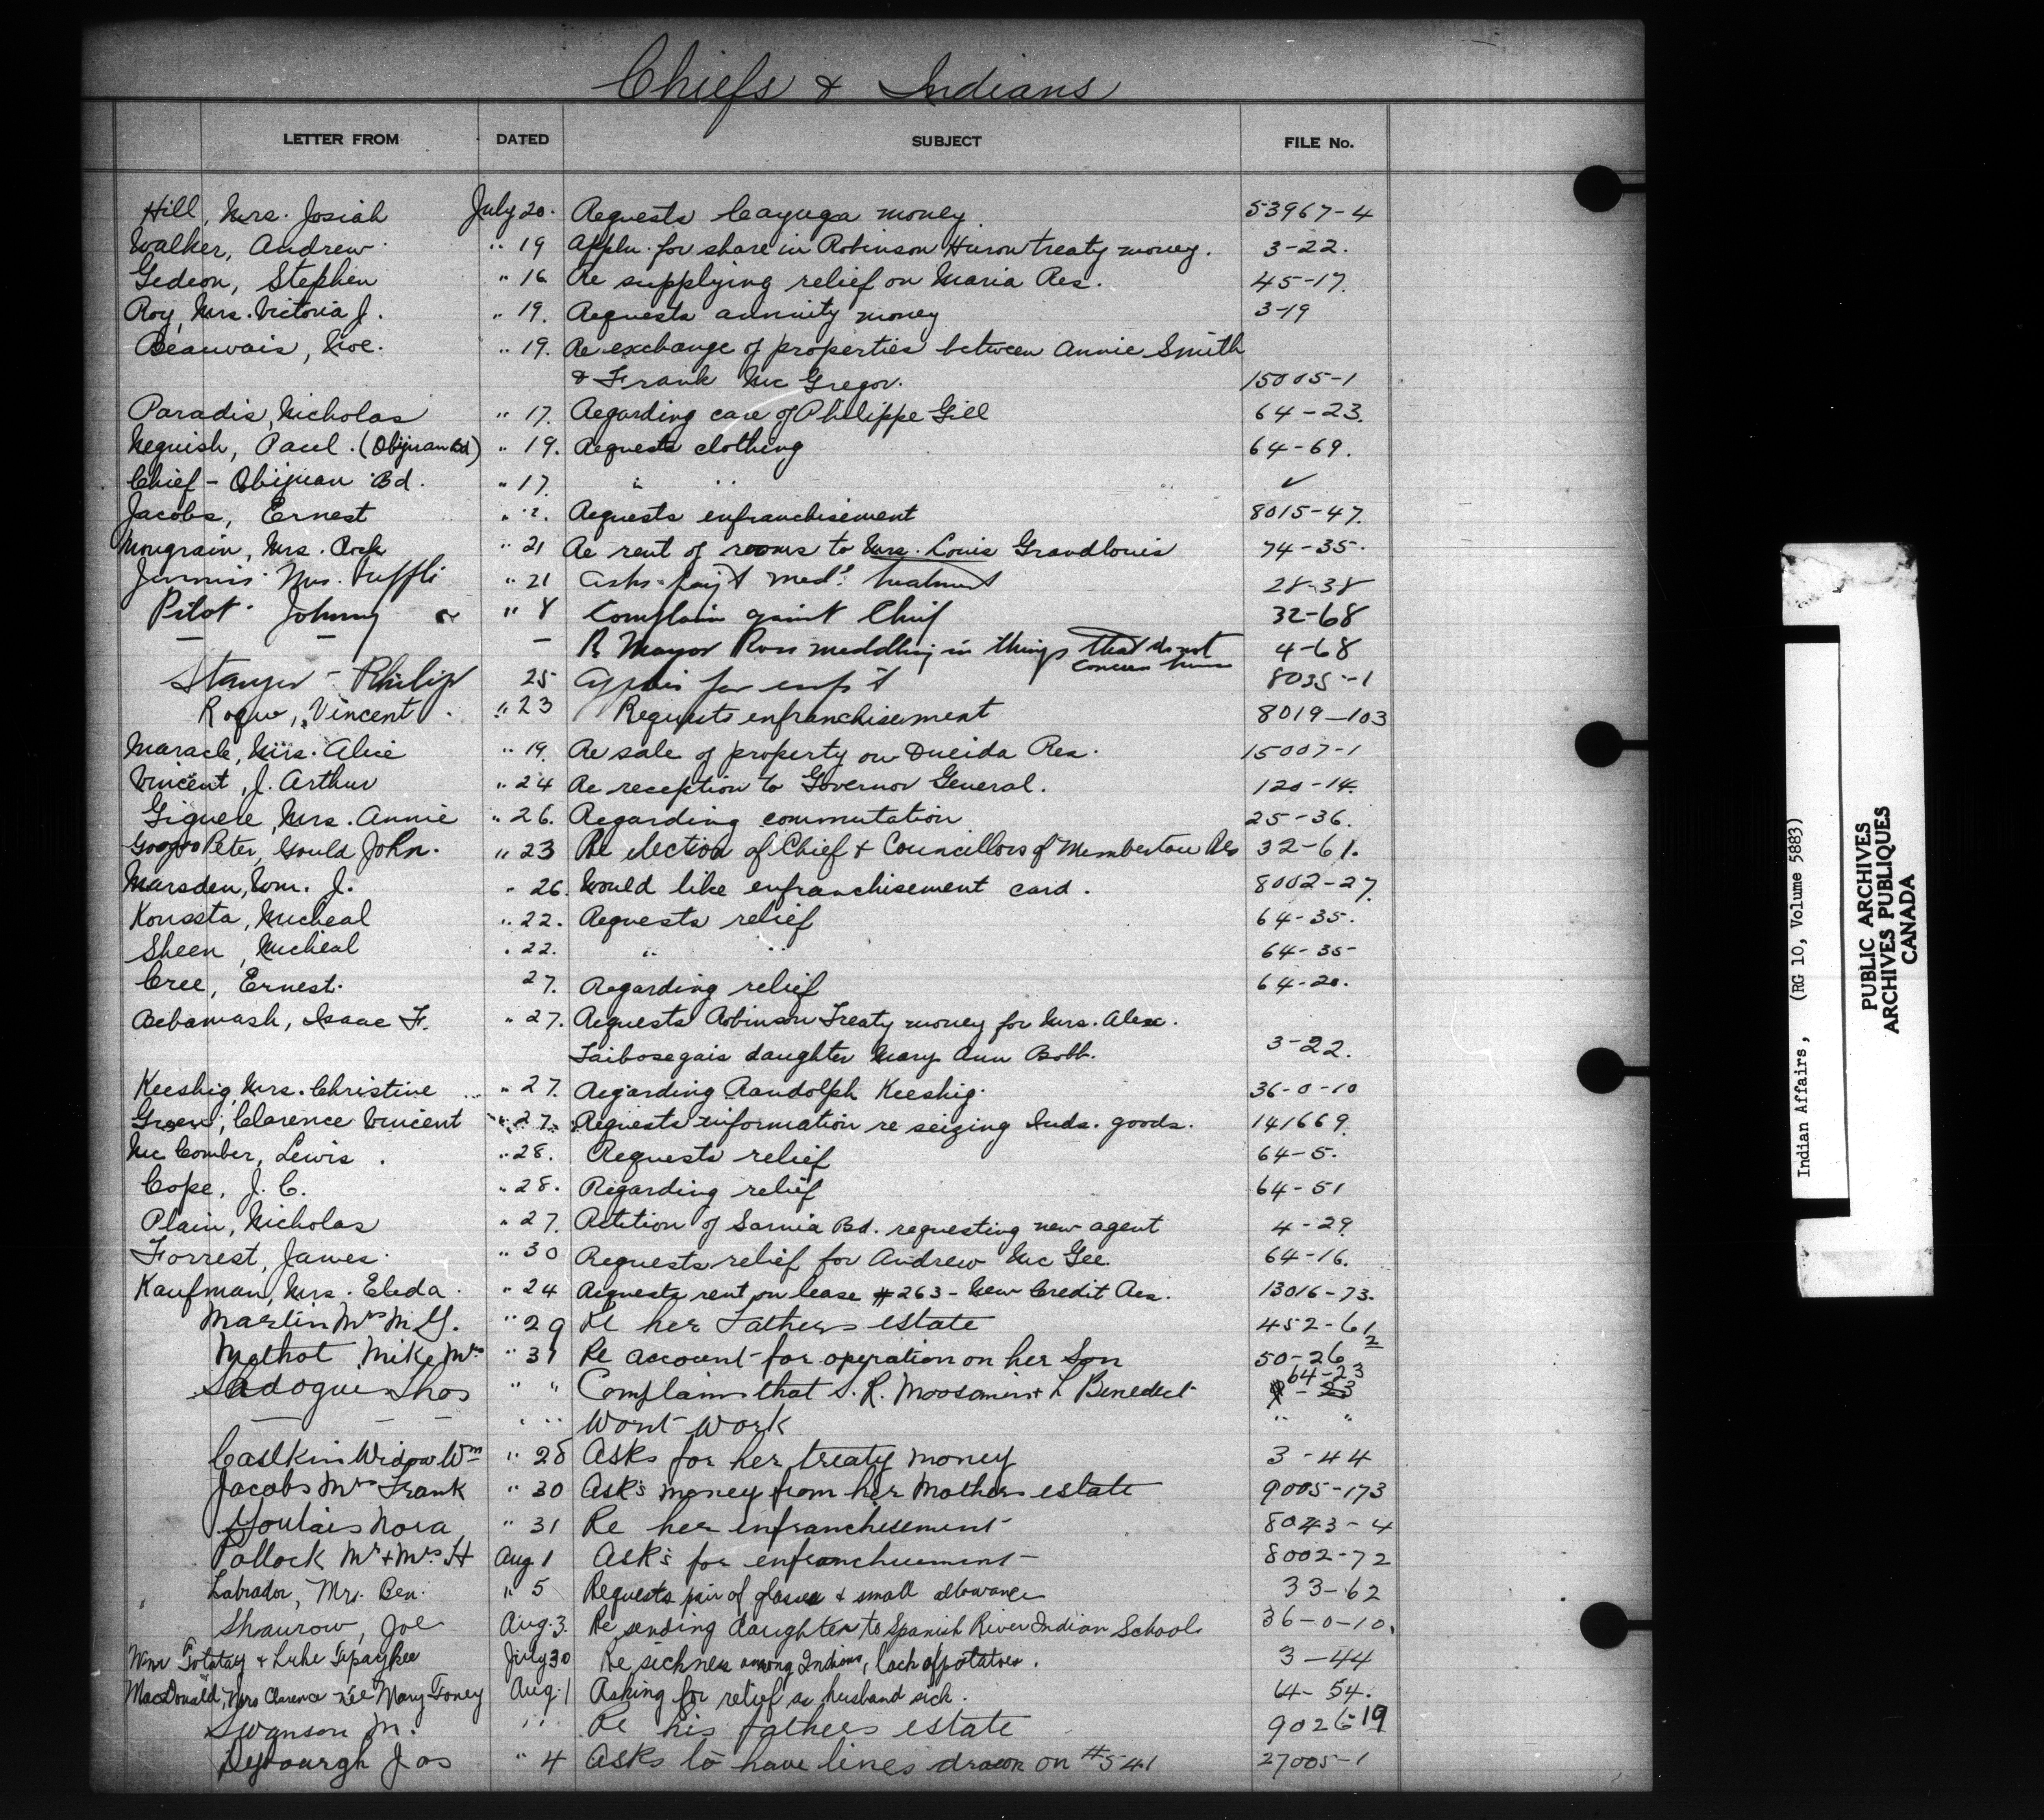 Chiefs & Indians
LETTER FROM DATED SUBJECT FILE No.
Hill, Mrs. Josiah July 20. Requests Cayuga money 53967-4
Walker, Andrew " 19 Appln. for share in Robinson Huron treaty money. 3-22.
Gedeon, Stephen " 16 Re supplying relief on Maria Res. 45-17.
Roy, Mrs. Victoria J. " 19. Requests annuity money 3-19
Beauvais, " 19. Re exchange of properties between Annie Smith
& Frank Mc Gregor. 15005-1
Paradis, Nicholas " 17. Regarding care of Philippe Gill 64-23.
Neguish, Paul. (Obijuan Bd) " 19. Requests clothing 64-69.
Chief - Obijuan Bd. " 17. " " ✓
Jacobs, Ernest " Requests enfranchisement 8015-47.
Mongrain, Mrs. Rock " 21 Re rent of rooms to Mrs. Louis Grandlouis 74-35.
Mrs. " 21 Asks pay't med. treatment 28-38
Pilot Johnny " 8 Complain against Chief 32-68
— — — Re Mayor Ross meddling in things that do not concern him 4-68
Philip 25 for enf't 8035-1
Vincent " 23 Requests enfranchisement 8019-103
Maracle, Mrs. Alice " 19. Re sale of property on Oneida Res. 15007-1
Vincent, J. Arthur " 24 Re reception to Governor General. 120-14.
Giguere, Mrs. Annie " 26. Regarding commutation 25-36.
Googoo Peter, Gould John. " 23 Re election of Chief & Councillors of Membertou Res 32-61.
Marsden, Wm. J. " 26. Would like enfranchisement card. 8002-27.
Konssta, Micheal " 22. Requests relief 64-35.
Sheen, Micheal " 22. " " 64-35
Cree, Ernest. 27. Regarding relief 64-20.
Bebamash, Isaac F. " 27. Requests Robinson Treaty money for Mrs. Alex.
Taibosegais daughter Mary Ann Bobb. 3-22.
Keeshig, Mrs. Christine " 27. Regarding Randolph Keeshig. 36-0-10
Green, Clarence Vincent " 27. Requests information re seizing Inds. goods. 141669.
Mc Comber, Lewis. " 28. Requests relief 64-5.
Cope, J. C. " 28. Regarding relief 64-51
Plain, Nicholas " 27. Petition of Sarnia Bd. requesting new agent 4-29.
Forrest, James. " 30 Requests relief for Andrew Mc Gee. 64-16.
Kaufman, Mrs. Eleda. " 24 Requests rent on lease #263 - New Credit Res. 13016-73.
Martin Mrs M. G. " 29 Re her Fathers estate 452-61
Mathot Mike Mrs " 31 Re account for operation on her Son 50-26 2
Sadogue Thos " " Complains that S. R. Moosomin & L Benedict 64-23
— — — " " Wont work " "
Calkin Widow Wm " 28 Asks for her treaty money 3-44
Jacobs Mrs Frank " 30 Ask's money from her Mothers estate 9005-173
Nora " 31 Re her enfranchisement 8043-4
Pollock Mr & Mrs H Aug 1 Ask's for enfranchisement 8002-72
Labrador, Mrs. Ben. " 5 Requests pair of glasses & small allowance 33-62
Shaurow, Joe Aug. 3. Re sending daughter to Spanish River Indian School. 36-0-10.
& Luke July 30 Re sickness among Indians, lack of potatoes. 3-44
MacDonald, Mrs Clarence née Mary Toney Aug. 1 Asking for relief as husband sick. 64-54.
Swanson M. " Re his fathers estate 9026-19
Jos " 4 Asks to have lines drawn on #541 27005-1
Indian Affairs, (RG 10, Volume 5883)
PUBLIC ARCHIVES
ARCHIVES PUBLIQUES
CANADA